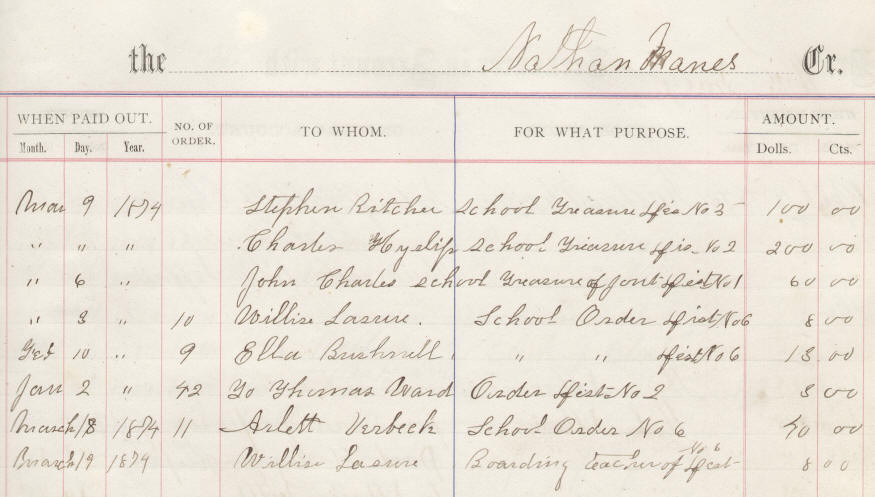 the Nathan Manes Cr.
WHEN PAID OUT. NO. OF ORDER. TO WHOM. FOR WHAT PURPOSE. AMOUNT.
Month. Day. Year. Dolls. Cts.
Mar 9 1874 Stephen Ritcher School Treasure Dist No 3 100 00
" " " Charles Hyslip School Treasure Dis No 2 200 00
" 6 " John Charles School Treasure of Joint Dist No 1 60 00
" 3 " 10 Willise Lasure. School Order Dist No 6 8 00
Feb 10 " 9 Ella Bushnell " " Dist No 6 13 00
Jan 2 " 42 To Thomas Ward Order Dist No 2 3 00
March 18 1874 11 Arlett Verbeck School Order No 6 00
March 19 1874 Willise Lasure Boarding teacher of No 6 Dist 8 00